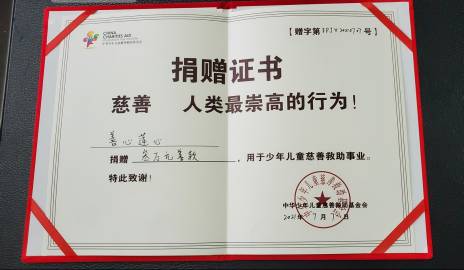 CHINA
CHARITIES AID
【赠字第 号】
捐赠证书
慈善 人类最崇高的行为！
善心莲心
捐赠 叁万元善款 ，用于少年儿童慈善救助事业。
特此致谢！
中华少年儿童慈善救助基金会
2021年7月7日